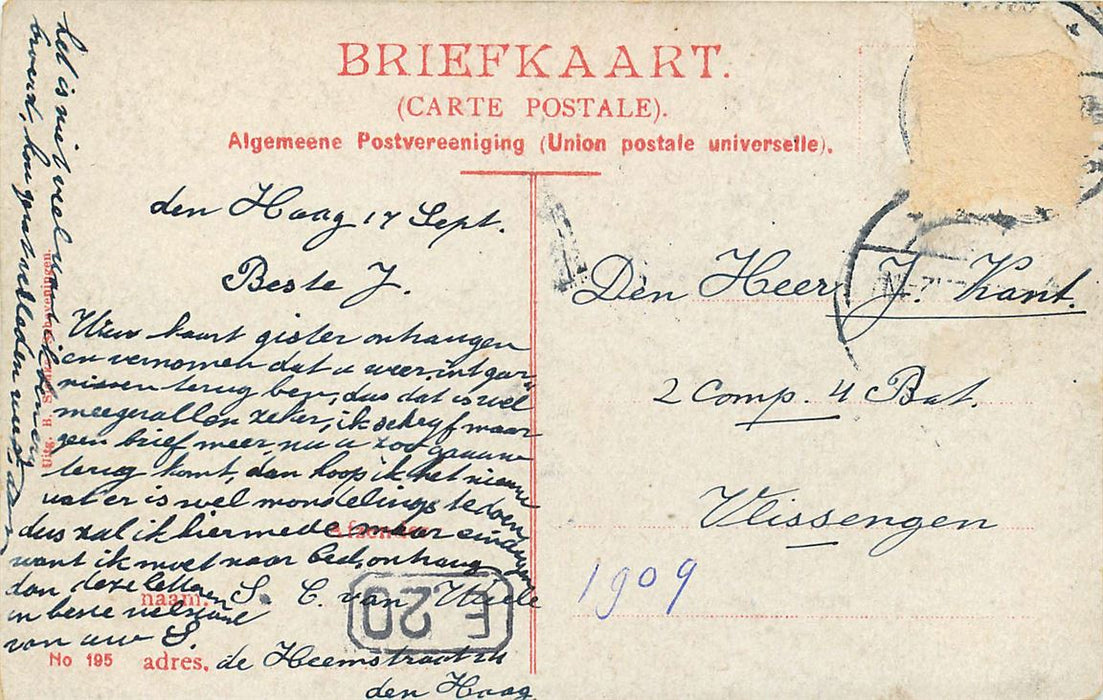 BRIEFKAART.
(CARTE POSTALE).
Algemeene Postvereeniging (Union postale universelle).
den Haag 17 Sept.
Beste J.
Uuw kaart gister onthangen
en vernomen dat u weer int gar-
nisoen terug ben, dus dat is wel
meegevallen zeker, ik schryf maar
geen brief meer, nu u zoo gauw
terug komt, dan hoop ik het nieuws
wat er is wel mondelings te doen
dus zal ik hiermede maar eindigen
want ik moet naar bed, onthang
dan deze letteren
in beste welstand
van uw S.
het is niet veel
Uitg. Scheveningen
Afzender
naam. S. C. van Weele
No 195 adres. de Heemstraat
den Haag
E.20
Den Heer J. Kant.
2 Comp. 4 Bat.
Vlissengen
1909